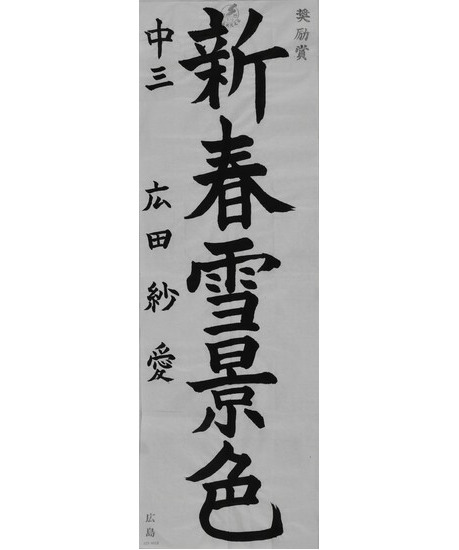 奨励賞
新春雪景色
中三 広田紗愛
広島